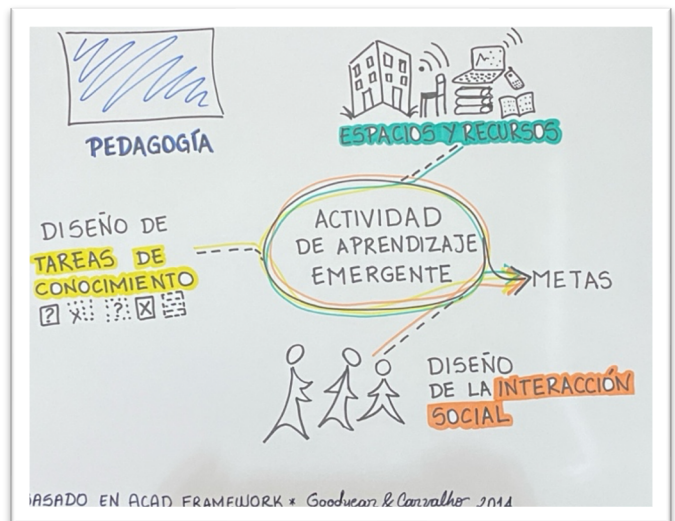 PEDAGOGÍA
ESPACIOS Y RECURSOS
DISEÑO DE
TAREAS DE
CONOCIMIENTO
? X ? X
ACTIVIDAD
DE APRENDIZAJE
EMERGENTE
METAS
DISEÑO
DE LA INTERACCIÓN
SOCIAL
BASADO EN ACAD FRAMEWORK * Goodyear & Carvalho 2014